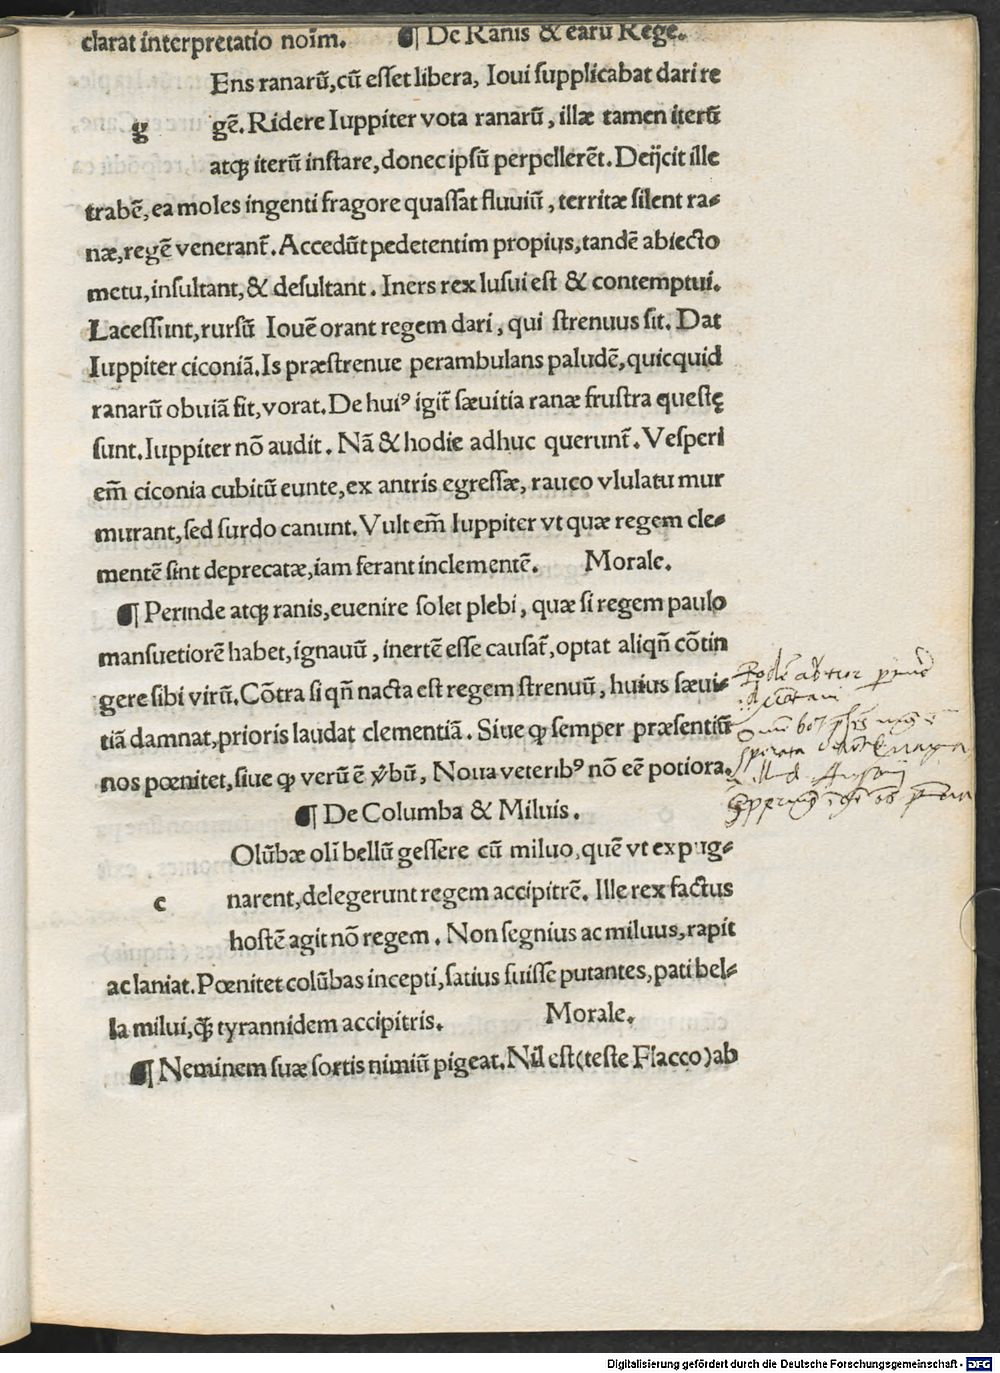 clarat interpretatio noīm. ¶ De Ranis & earū Rege.
Ens ranarū, cū esset libera, Ioui supplicabat dari re
g gē. Ridere Iuppiter vota ranarū, illæ tamen iterū
atqꝫ iterū instare, donec ipsū perpellerēt. Deijcit ille
trabē, ea moles ingenti fragore quassat fluuiū, territæ silent ra⸗
næ, regē venerant̄. Accedūt pedetentim propius, tandē abiecto
metu, insultant, & desultant. Iners rex lusui est & contemptui.
Lacessunt, rursū Iouē orant regem dari, qui strenuus sit. Dat
Iuppiter ciconiā. Is præstrenue perambulans paludē, quicquid
ranarū obuiā fit, vorat. De huiꝰ igit̄ sæuitia ranæ frustra questę
sunt. Iuppiter nō audit. Nā & hodie adhuc querunt̄. Vesperi
em̄ ciconia cubitū eunte, ex antris egressæ, rauco vlulatu mur
murant, sed surdo canunt. Vult em̄ Iuppiter vt quæ regem cle⸗
mentē sint deprecatæ, iam ferant inclementē. Morale.
¶ Perinde atqꝫ ranis, euenire solet plebi, quæ si regem paulo
mansuetiorē habet, ignauū, inertē esse causat̄, optat aliqn̄ cōtin
gere sibi virū. Cōtra si qn̄ nacta est regem strenuū, huius sæui⸗
tiā damnat, prioris laudat clementiā. Siue ꝙ semper præsentiū
nos pœnitet, siue ꝙ verū ē v̄bū, Noua veteribꝰ nō eē potiora.
¶ De Columba & Miluis.
Olūbæ oli bellū gessere cū miluo, quē vt expug⸗
c narent, delegerunt regem accipitrē. Ille rex factus
hostē agit nō regem. Non segnius ac miluus, rapit
ac laniat. Pœnitet colūbas incepti, satius fuisse putantes, pati bel⸗
la milui, q̄ꝫ tyrannidem accipitris. Morale.
¶ Neminem suæ sortis nimiū pigeat. Nil est (teste Flacco) ab
Digitalisierung gefördert durch die Deutsche Forschungsgemeinschaft - DFG